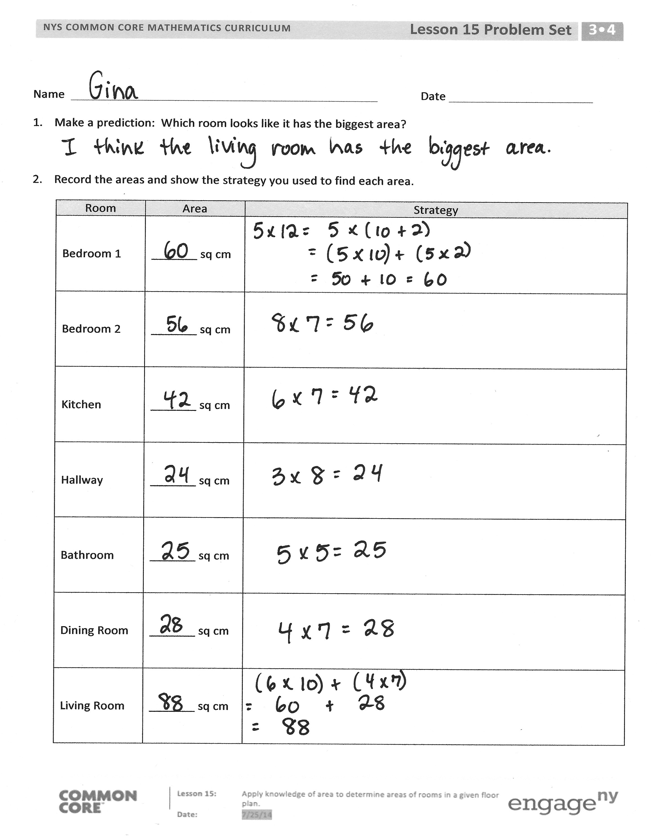 NYS COMMON CORE MATHEMATICS CURRICULUM Lesson 15 Problem Set 3•4
Name Gina Date
1. Make a prediction: Which room looks like it has the biggest area?
I think the living room has the biggest area.
2. Record the areas and show the strategy you used to find each area.
Room Area Strategy
Bedroom 1 60 sq cm 5 x 12 = 5 x (10 + 2)
= (5 x 10) + (5 x 2)
= 50 + 10 = 60
Bedroom 2 56 sq cm 8 x 7 = 56
Kitchen 42 sq cm 6 x 7 = 42
Hallway 24 sq cm 3 x 8 = 24
Bathroom 25 sq cm 5 x 5 = 25
Dining Room 28 sq cm 4 x 7 = 28
Living Room 88 sq cm (6 x 10) + (4 x 7)
= 60 + 28
= 88
COMMON CORE
Lesson 15: Apply knowledge of area to determine areas of rooms in a given floor
plan.
Date: 7/25/14
engageny